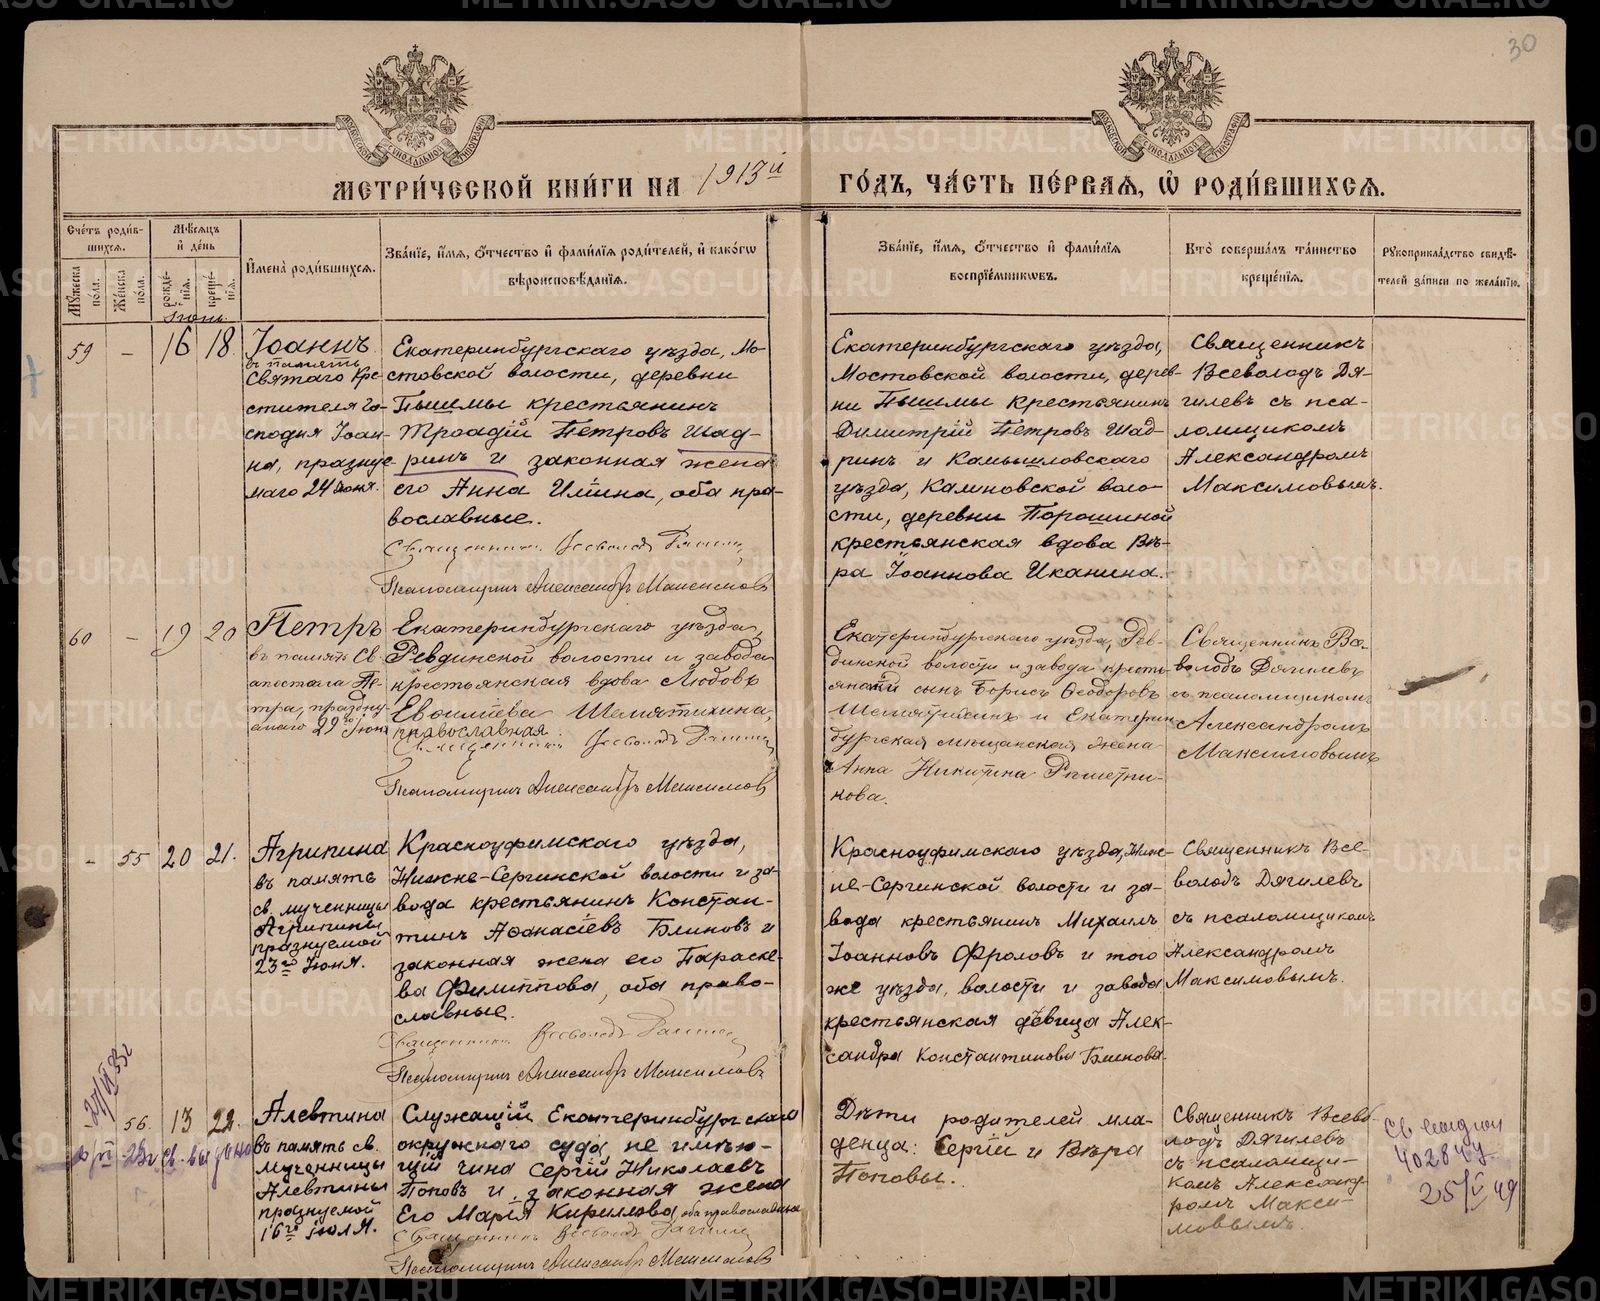 30
МЕТРИ́ЧЕСКОЙ КНИ́ГИ НА 1913й ГО́ДЪ, ЧА́СТЬ ПЕ́РВАѦ, Ѡ҆ РОДИ́ВШИХСѦ.
Сче́тъ роди́в-
шихсѧ.
Мѣ́сѧцъ
и҆ де́нь
И҆мена̀ роди́вшихсѧ.
Зва́нїе, и҆́мѧ, о҆́тчество и҆ фами́лїѧ роди́телей, и҆ како́гѡ
вѣроисповѣ́данїѧ.
Зва́нїе, и҆́мѧ, о҆́тчество и҆ фами́лїѧ
воспрїе́мникѡвъ.
Кто̀ соверша́лъ та́инство
креще́нїѧ.
Рꙋкоприкла́дство свидѣ́-
телей за́писи по жела́нїю.
Мꙋ́жеска
по́ла.
Же́нска
по́ла.
рожде́-
нїѧ.
креще́-
нїѧ.
Іюнь
59 – 16 18
Іоаннъ
въ память
Святаго Кре-
стителя Го-
сподня Іоан-
на, праздуе-
маго 24 Іюня.
Екатеринбургскаго уѣзда, Мо-
стовской волости, деревни
Пышмы крестьянинъ
Троадій Петровъ Шад-
ринъ и законная жена
его Анна Иліина, оба пра-
вославные.
Священникъ Всеволодъ Дягилевъ
Псаломщикъ Александръ Максимовъ
Екатеринбургскаго уѣзда,
Мостовской волости, дерев-
ни Пышмы крестьянинъ
Димитрій Петровъ Шад-
ринъ и Камышловскаго
уѣзда, Калиновской воло-
сти, деревни Порошиной
крестьянская вдова Вѣ-
ра Іоаннова Иканина.
Священникъ
Всеволодъ Дя-
гилевъ съ пса-
ломщикомъ
Александромъ
Максимовымъ.
60 – 19 20
Петръ
въ память Св.
апостала Пе-
тра, праздну-
емаго 29го Іюня
Екатеринбургскаго уѣзда,
Ревдинской волости и завода
крестьянская вдова Любовь
Евоиліева Шемятихина,
православная.
Священникъ Всеволодъ Дягилевъ
Псаломщикъ Александръ Максимовъ
Екатеринбургскаго уѣзда, Рев-
динской волости и завода кресть-
янскій сынъ Борисъ Ѳеодоровъ
Шемятихинъ и Екатерин-
бургская мѣщанская жена
Анна Никитина Рѣшетни-
кова.
Священникъ Все-
володъ Дягилевъ
съ псаломщикомъ
Александромъ
Максимовымъ
– 55 20 21.
Агрипина
въ память
св. мученницы
Агрипины
празнуемой
23го Іюня.
Красноуфимскаго уѣзда,
Нижне-Сергинской волости и за-
вода крестьянинъ Констан-
тинъ Аѳанасіевъ Блиновъ и
законная жена его Параске-
ва Филиппова, оба право-
славные.
Священникъ Всеволодъ Дягилевъ
Псаломщикъ Александръ Максимовъ
Красноуфимскаго уѣзда, Ниж-
не-Сергинской волости и за-
вода крестьянинъ Михаилъ
Іоанновъ Фроловъ и того
же уѣзда, волости и завода
крестьянская дѣвица Алек-
сандра Константинова Блинова.
Священникъ Все-
володъ Дягилевъ
съ псаломщикомъ
Александромъ
Максимовымъ.
56. 13 22.
Алевтина
въ память св.
мученницы
Алевтины
празнуемой
16го Іюля.
Служащій Екатеринбургскаго
окружнаго суда не имѣю-
щій чина Сергій Николаевъ
Поповъ и законная жена
Его Марія Кириллова, оба православные
Священникъ Всеволодъ Дягилевъ
Псаломщикъ Александръ Максимовъ
Дѣти родителей мла-
денца: Сергій и Вѣра
Поповы.
Священникъ Всево-
лодъ Дягилевъ
съ псаломщи-
комъ Александ-
ромъ Макси-
мовымъ.
402844
25/V 49